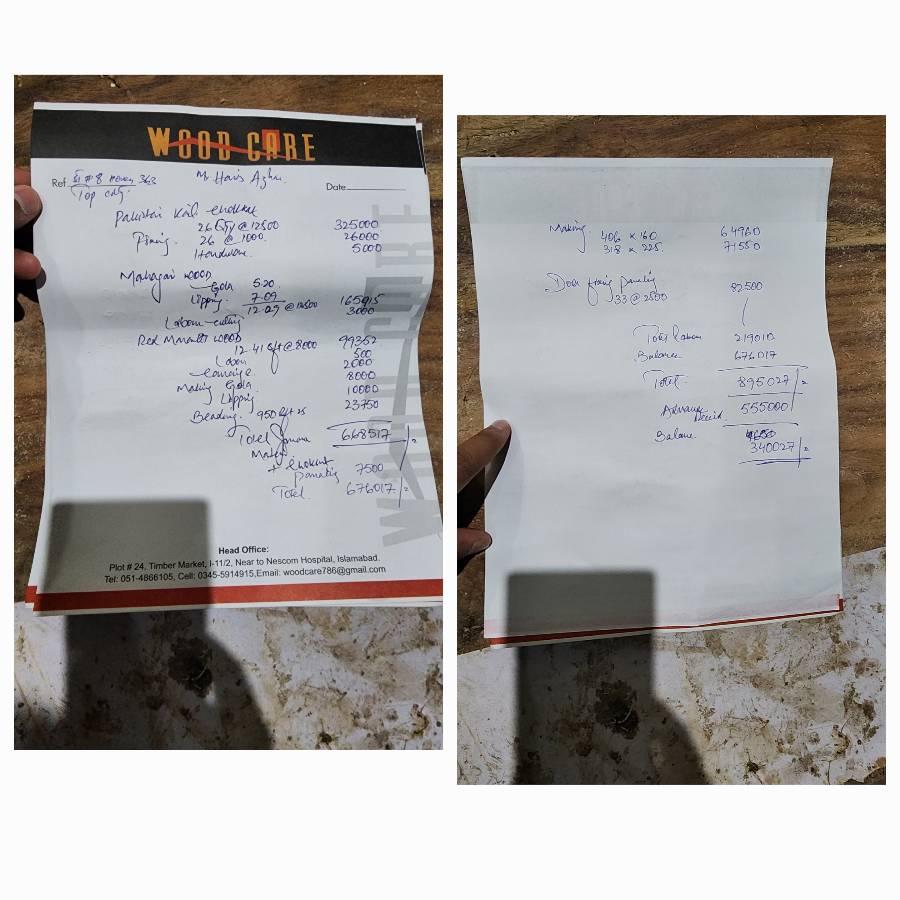 WOOD CARE
Ref. St # 8 House 363
Top city.
M. Haris Azhar
Date
Pakistani Kail chokhat
26 Qty @ 12500 325000
Fixing. 26 @ 1000. 26000
Hardware 5000
Mahagani wood
Gola 5.20
Lipping. 7.09
12.29 @ 13500 165915
Labour cutting 3000
Red Maranti wood 99352
12.41 cft @ 8000 500
Labour 2000
Carraige. 8000
Making Gola 10000
Lipping 23750
Beading. 950 Rft 25
Total 668517/=
+ chokhat
paneling 7500
Total 676017/=
WOOD CARE
Head Office:
Plot # 24, Timber Market, I-11/2, Near to Nescom Hospital, Islamabad.
Tel: 051-4866105, Cell: 0345-5914915,Email: woodcare786@gmail.com
Making 406 x 160. 64960
318 x 225. 71550
Door fixing paneling
33 @ 2500 82500
Total labour 219010
Balance 676017
Total. 895027/=
Advance 555000
Balance
340027/=